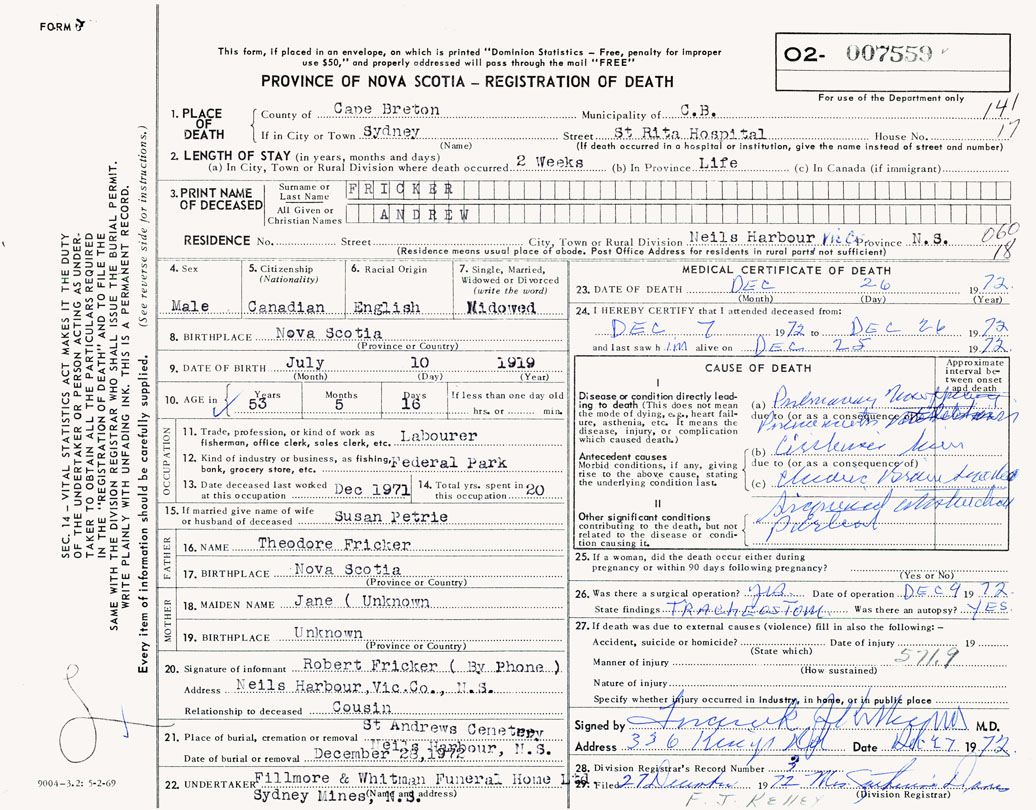 FORM
This form, if placed in an envelope, on which is printed "Dominion Statistics – Free, penalty for improper
use $50," and properly addressed will pass through the mail "FREE"
PROVINCE OF NOVA SCOTIA – REGISTRATION OF DEATH
02- 007559
For use of the Department only
141
17
1. PLACE OF DEATH
County of Cape Breton Municipality of C.B.
If in City or Town Sydney Street St Rita Hospital House No.
(Name) (If death occurred in a hospital or institution, give the name instead of street and number)
2. LENGTH OF STAY (in years, months and days)
(a) In City, Town or Rural Division where death occurred 2 Weeks (b) In Province Life (c) In Canada (if immigrant)
3. PRINT NAME OF DECEASED
Surname or Last Name FRICKER
All Given or Christian Names ANDREW
RESIDENCE No. Street City, Town or Rural Division Neils Harbour Vic Co Province N.S.
(Residence means usual place of abode. Post Office Address for residents in rural parts not sufficient)
060
18
4. Sex
Male
5. Citizenship
(Nationality)
Canadian
6. Racial Origin
English
7. Single, Married,
Widowed or Divorced
(write the word)
Widowed
8. BIRTHPLACE Nova Scotia
(Province or Country)
9. DATE OF BIRTH July 10 1919
(Month) (Day) (Year)
10. AGE in Years 53 Months 5 Days 16 If less than one day old
hrs. or min.
OCCUPATION
11. Trade, profession, or kind of work as
fisherman, office clerk, sales clerk, etc. Labourer
12. Kind of industry or business, as fishing,
bank, grocery store, etc. Federal Park
13. Date deceased last worked
at this occupation Dec 1971
14. Total yrs. spent in
this occupation 20
15. If married give name of wife
or husband of deceased Susan Petrie
FATHER
16. NAME Theodore Fricker
17. BIRTHPLACE Nova Scotia
(Province or Country)
MOTHER
18. MAIDEN NAME Jane ( Unknown
19. BIRTHPLACE Unknown
(Province or Country)
20. Signature of informant Robert Fricker ( By Phone )
Address Neils Harbour,Vic.Co., N.S.
Relationship to deceased Cousin
21. Place of burial, cremation or removal St Andrews Cemetery
Neils Harbour, N.S.
Date of burial or removal December 28,1972
22. UNDERTAKER Fillmore & Whitman Funeral Home Ltd.
Sydney Mines, N.S.
(Name and address)
MEDICAL CERTIFICATE OF DEATH
23. DATE OF DEATH DEC 26 1972
(Month) (Day) (Year)
24. I HEREBY CERTIFY that I attended deceased from:
DEC 7 1972 to DEC 26 1972
and last saw him alive on DEC 25 1972
CAUSE OF DEATH
Approximate
interval be-
tween onset
and death
I
Disease or condition directly lead-
ing to death (This does not mean
the mode of dying, e.g., heart fail-
ure, asthenia, etc. It means the
disease, injury, or complication
which caused death.)
(a) Pulmonary
due to (or as a consequence of)
Antecedent causes
Morbid conditions, if any, giving
rise to the above cause, stating
the underlying condition last.
(b)
due to (or as a consequence of)
(c) Chronic Brain
II
Other significant conditions
contributing to the death, but not
related to the disease or condi-
tion causing it.
25. If a woman, did the death occur either during
pregnancy or within 90 days following pregnancy?
(Yes or No)
26. Was there a surgical operation? yes Date of operation DEC 9 1972
State findings TRACHEOSTOM Was there an autopsy? YES
27. If death was due to external causes (violence) fill in also the following: –
Accident, suicide or homicide? Date of injury 19
(State which)
Manner of injury
571.9
(How sustained)
Nature of injury
Specify whether injury occurred in Industry, in home, or in public place
Signed by M.D.
Address 336 Kings Rd Date Dec 27 1972
28. Division Registrar's Record Number
29. Filed 27 December 1972 Mrs
(Division Registrar)
F. J. KELLEY
SEC. 14 – VITAL STATISTICS ACT MAKES IT THE DUTY
OF THE UNDERTAKER OR PERSON ACTING AS UNDER-
TAKER TO OBTAIN ALL THE PARTICULARS REQUIRED
IN THE "REGISTRATION OF DEATH" AND TO FILE THE
SAME WITH THE DIVISION REGISTRAR WHO SHALL ISSUE THE BURIAL PERMIT.
WRITE PLAINLY WITH UNFADING INK. THIS IS A PERMANENT RECORD.
Every item of information should be carefully supplied. (See reverse side for instructions.)
9004-3.2: 5-2-69